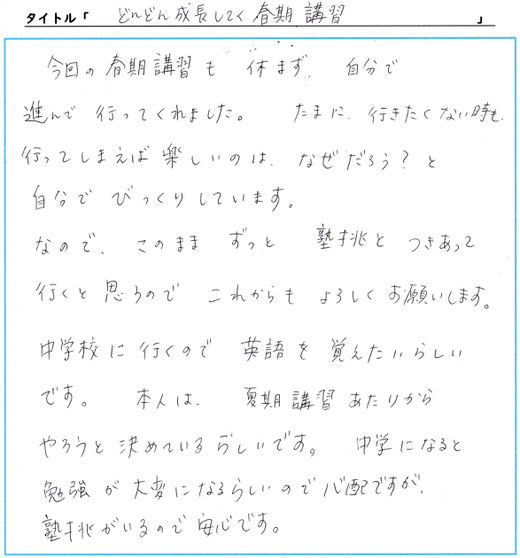 タイトル「 どんどん成長してく春期講習 」
今回の春期講習も 休まず、自分で
進んで 行ってくれました。 たまに、行きたくない時も、
行ってしまえば楽しいのは、なぜだろう?と
自分で びっくりしています。
なので、このまま ずっと 塾挑と つきあって
行くと思うので これからも よろしくお願いします。
中学校に行くので 英語を 覚えたいらしい
です。 本人は、 夏期講習あたりから
やろうと決めているらしいです。 中学になると
勉強が大変になるらしいので心配ですが、
塾挑がいるので安心です。